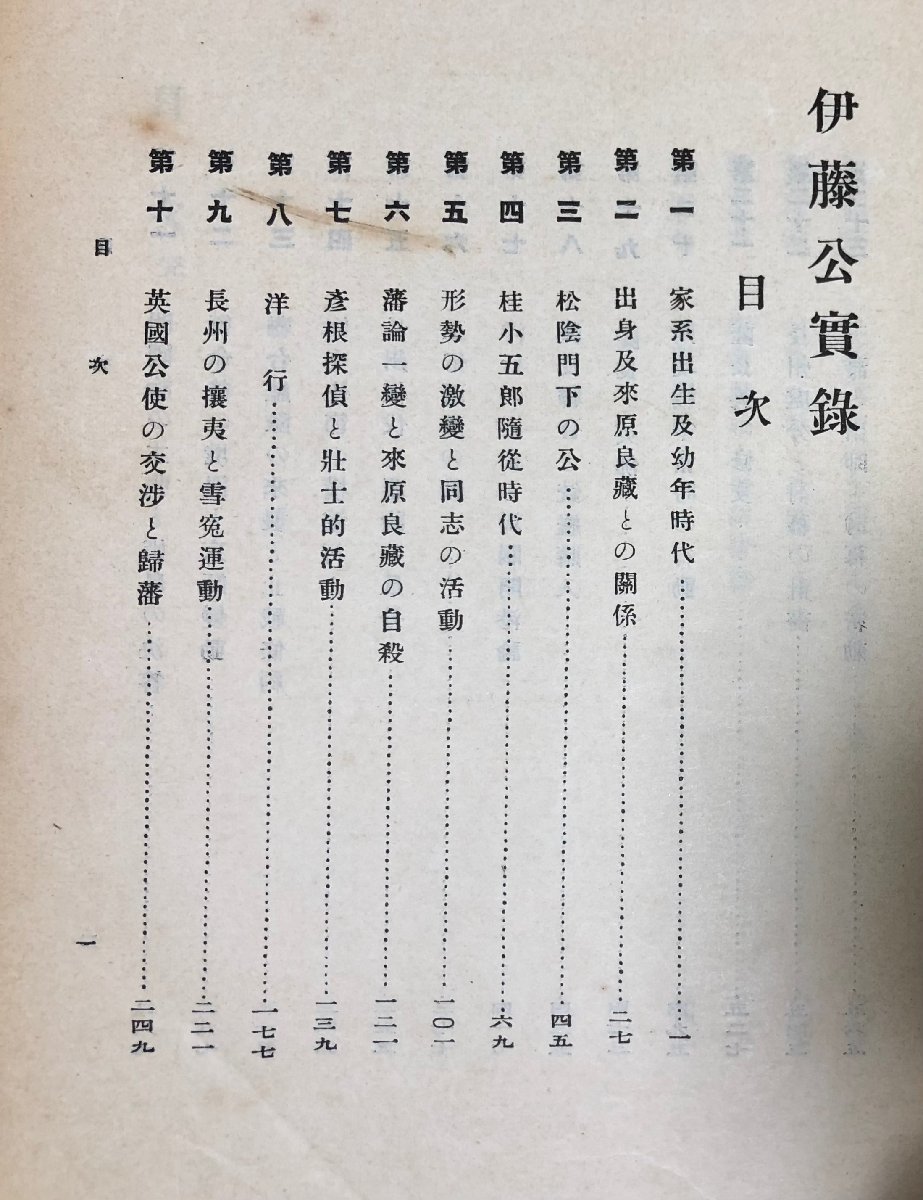 伊藤公實錄
目次
第一 家系出生及幼年時代……一
第二 出身及來原良藏との關係……二七
第三 松陰門下の公……四五
第四 桂小五郎隨從時代……六九
第五 形勢の激變と同志の活動……一〇一
第六 藩論一變と來原良藏の自殺……一二一
第七 彥根探偵と壯士的活動……一三九
第八 洋行……一七七
第九 長州の攘夷と雪寃運動……二二一
第十 英國公使の交涉と歸藩……二四九
目次
一